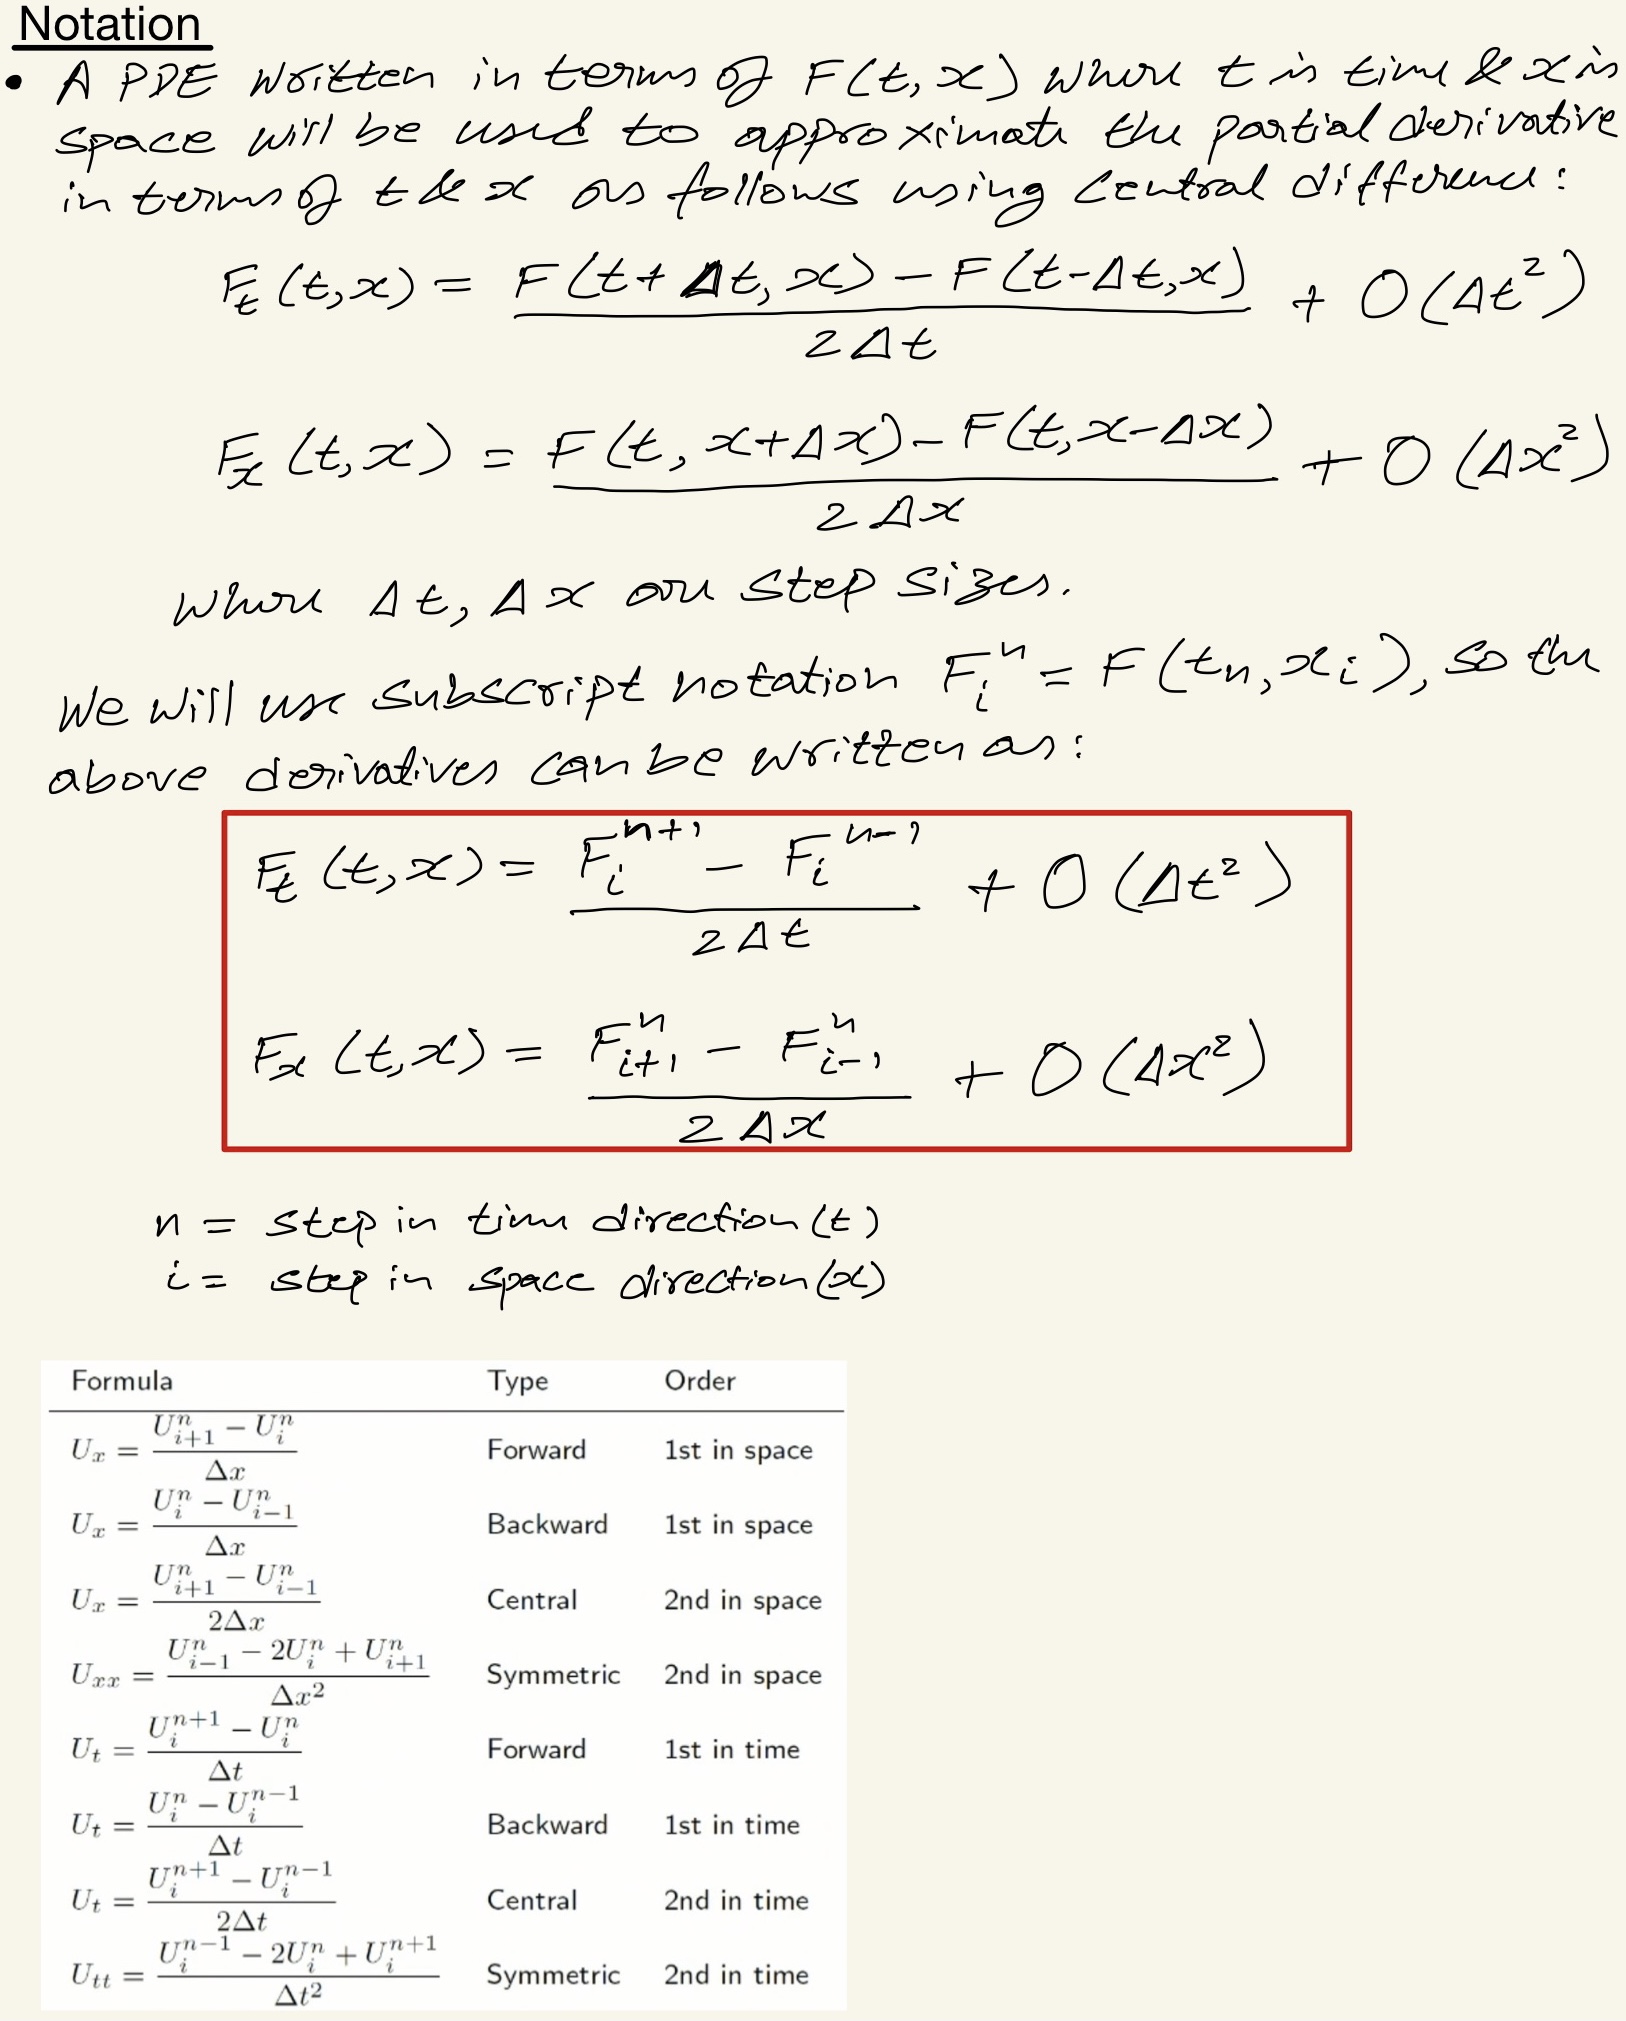 Notation
• A PDE written in terms of F(t, x) where t is time & x is
space will be used to approximate the partial derivative
in terms of t & x as follows using central difference:
F_t (t,x) = (F(t+Δt, x) − F(t−Δt,x)) / (2Δt) + O(Δt²)
F_x (t,x) = (F(t, x+Δx) − F(t,x−Δx)) / (2Δx) + O(Δx²)
where Δt, Δx are step sizes.
We will use subscript notation F_i^n = F(t_n, x_i), so the
above derivatives can be written as:
F_t (t,x) = (F_i^{n+1} − F_i^{n−1}) / (2Δt) + O(Δt²)
F_x (t,x) = (F_{i+1}^n − F_{i−1}^n) / (2Δx) + O(Δx²)
n = step in time direction (t)
i = step in space direction (x)
Formula Type Order
U_x = (U_{i+1}^n − U_i^n) / Δx Forward 1st in space
U_x = (U_i^n − U_{i−1}^n) / Δx Backward 1st in space
U_x = (U_{i+1}^n − U_{i−1}^n) / 2Δx Central 2nd in space
U_{xx} = (U_{i−1}^n − 2U_i^n + U_{i+1}^n) / Δx² Symmetric 2nd in space
U_t = (U_i^{n+1} − U_i^n) / Δt Forward 1st in time
U_t = (U_i^n − U_i^{n−1}) / Δt Backward 1st in time
U_t = (U_i^{n+1} − U_i^{n−1}) / 2Δt Central 2nd in time
U_{tt} = (U_i^{n−1} − 2U_i^n + U_i^{n+1}) / Δt² Symmetric 2nd in time